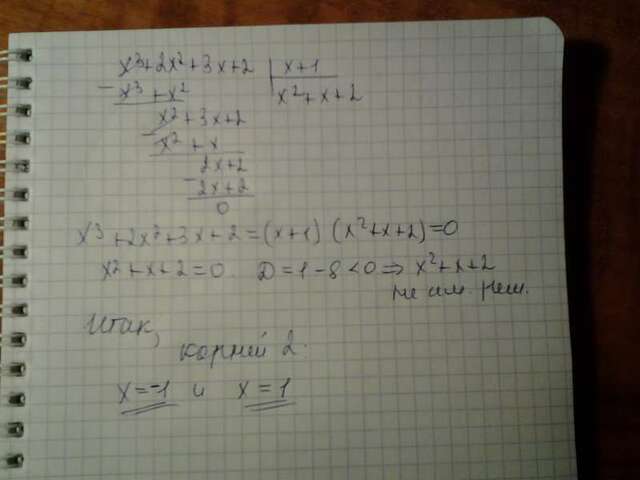 x³+2x²+3x+2 | x+1
- x³+x² x²+x+2
x²+3x+2
- x²+x
2x+2
- 2x+2
0
x³+2x²+3x+2=(x+1)(x²+x+2)=0
x²+x+2=0. D=1-8<0⇒x²+x+2
не им. реш.
Итак,
корней 2.
x=-1 и x=1